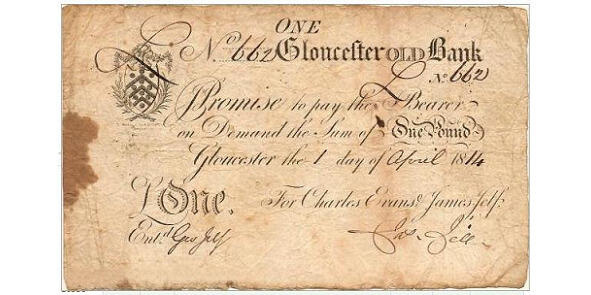 ONE
No. 662 Gloucester OLD Bank
No. 662
I Promise to pay the Bearer
on Demand the Sum of One Pound
Gloucester the 1 day of April 1814
£One. For Charles Evans & James Jelf.
Entd. Geo Jelf Jas. Jelf